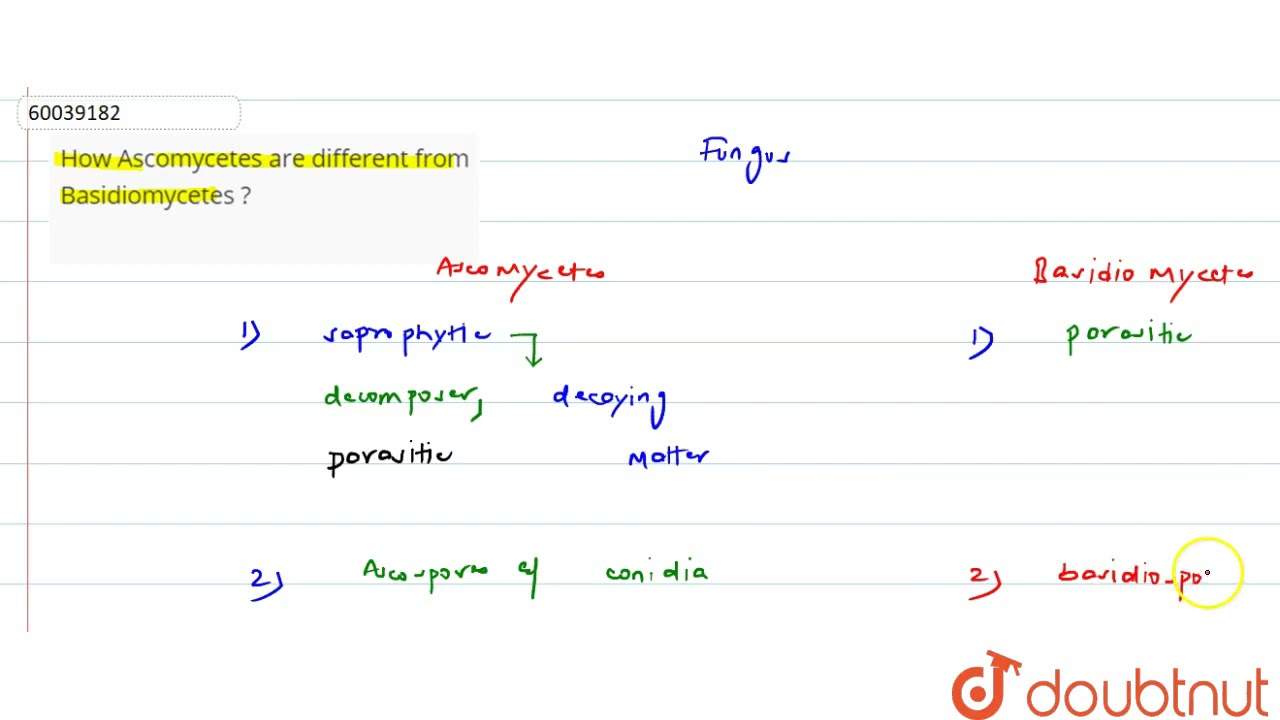 60039182
How Ascomycetes are different from
Basidiomycetes ?
Fungus
Ascomycetes
Basidiomycetes
1) saprophytic
1) parasitic
decomposer, decaying
parasitic matter
2) Ascospores & conidia
2) basidiospo
doubtnut